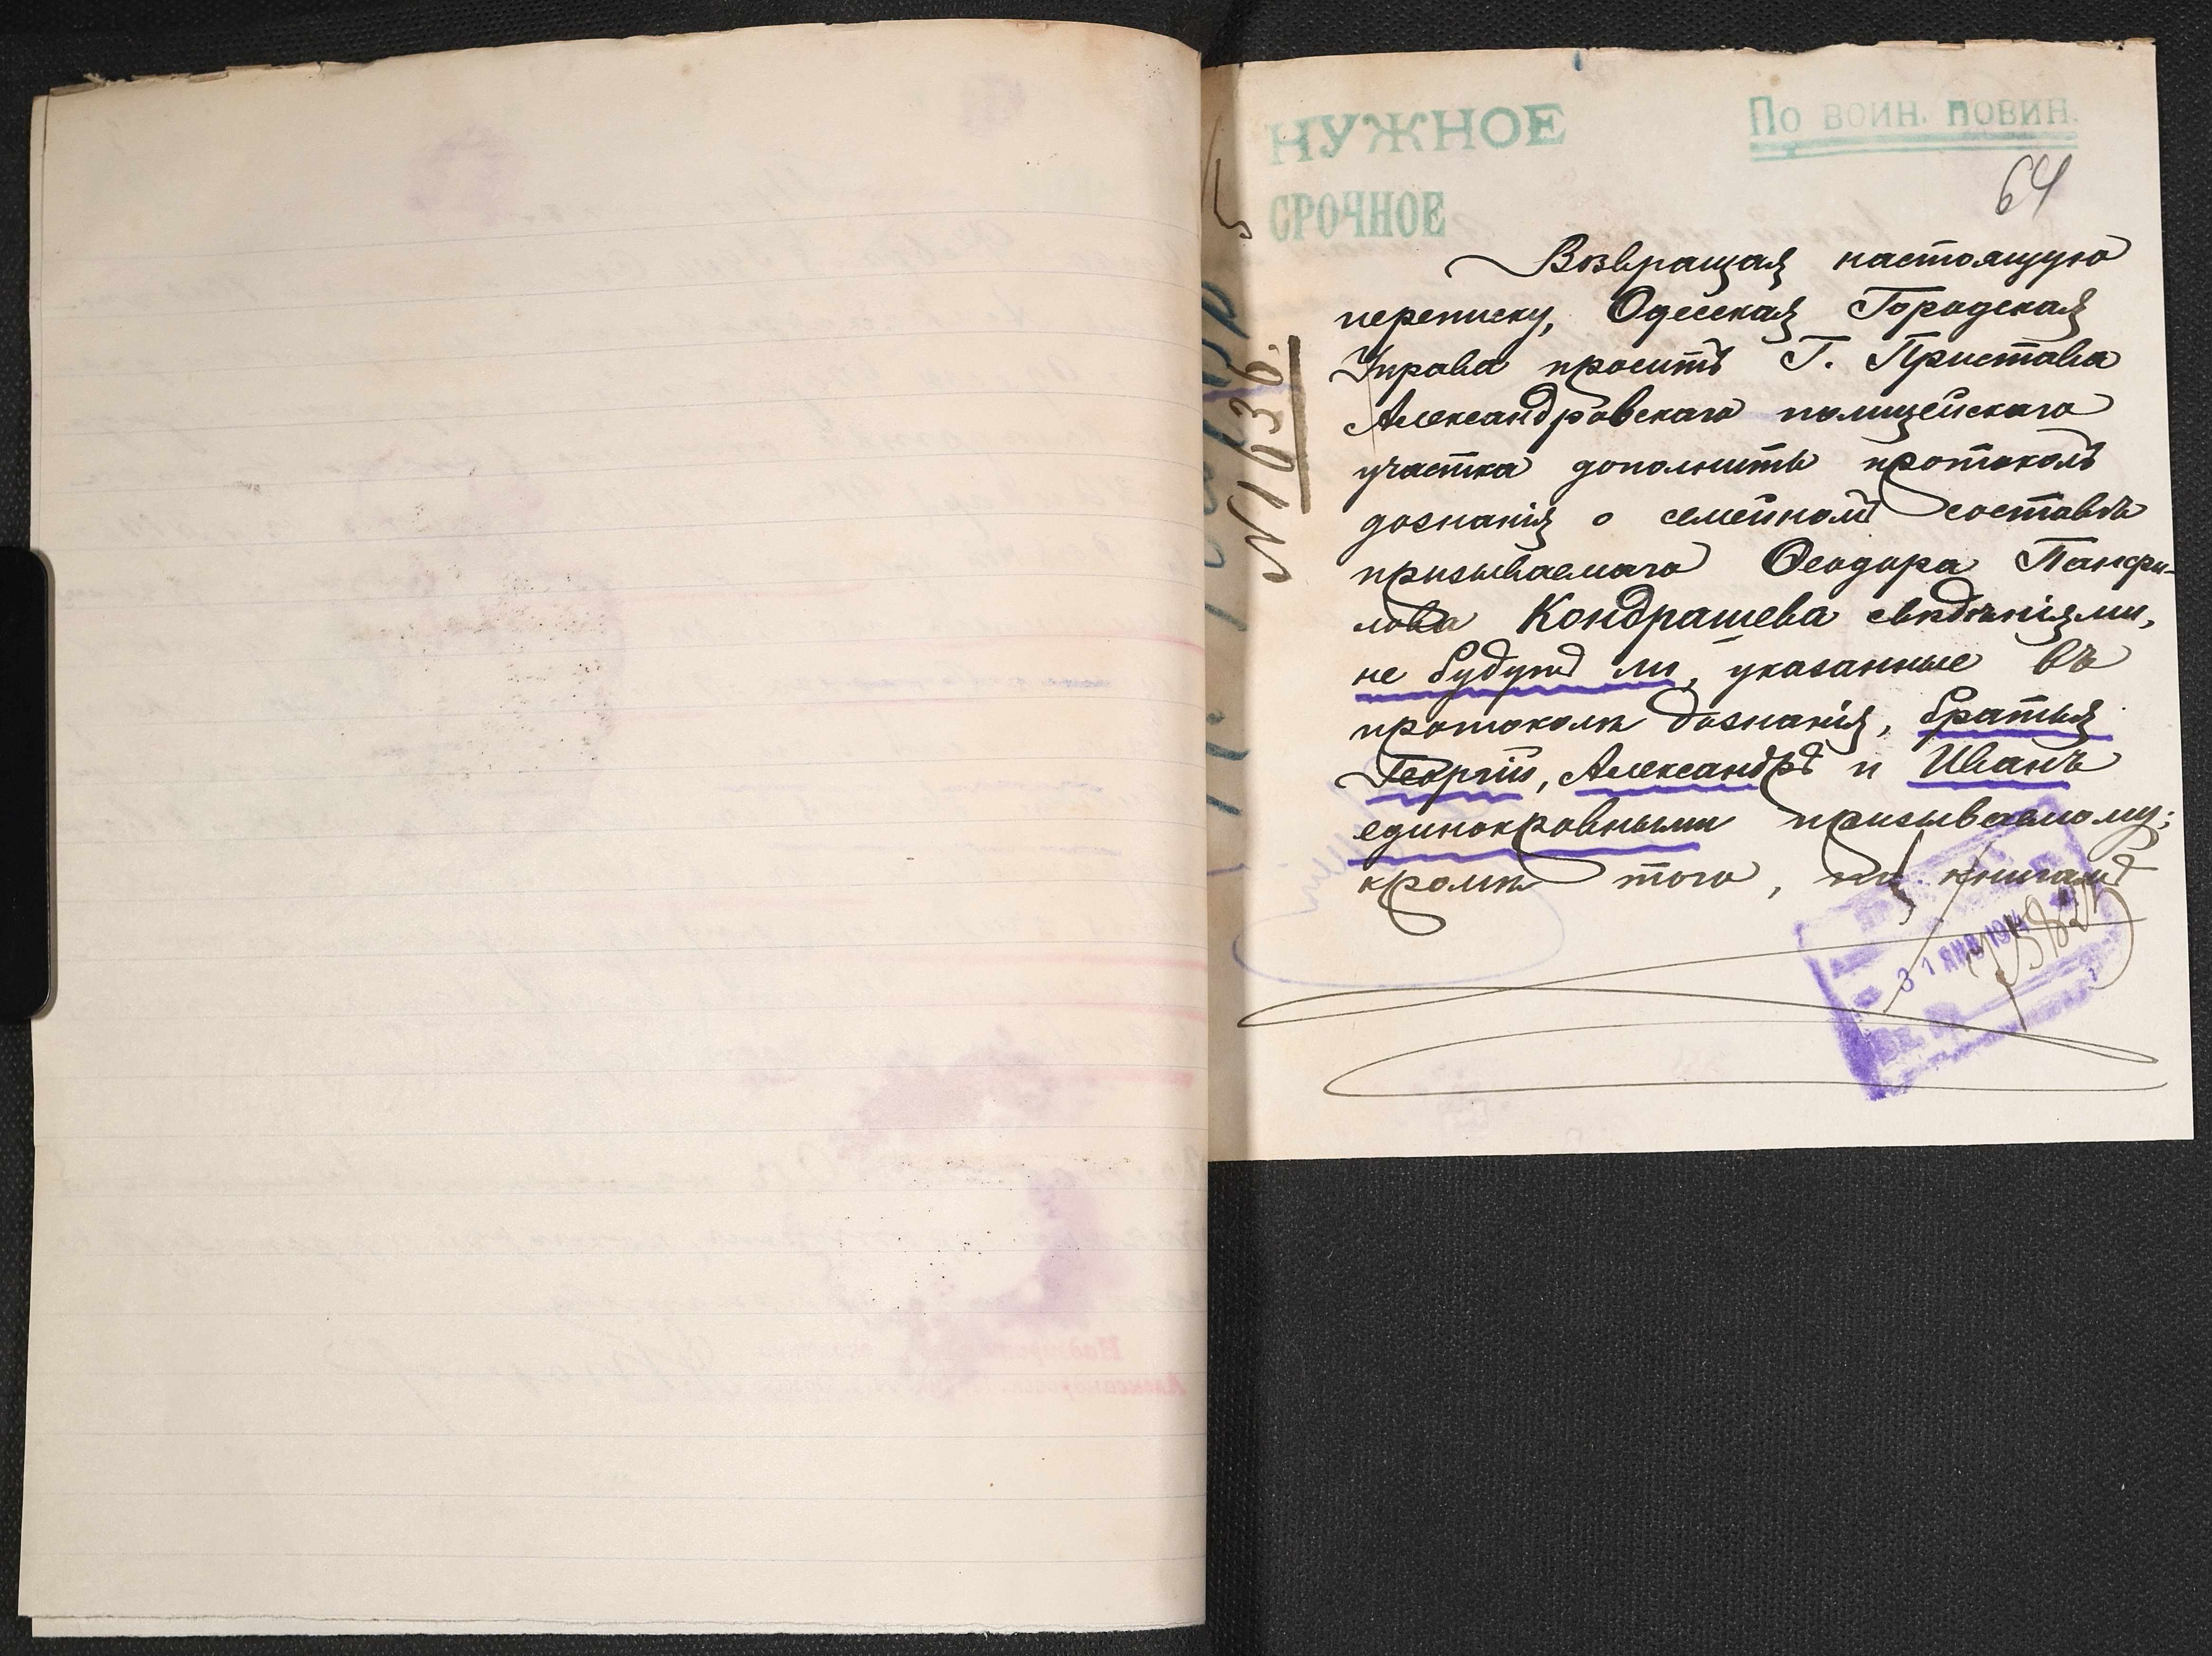 НУЖНОЕ
По воин. повин.
СРОЧНОЕ
64
№ 1636.
Возвращая настоящую
переписку, Одесская Городская
Управа проситъ Г. Пристава
Александровскаго полицейскаго
участка дополнить протоколъ
дознанія о семейномъ составѣ
призываемаго Ѳеодора Панфи-
лова Кондрашева свѣдѣніями,
не будутъ ли, указанные въ
протоколѣ дознанія, братья
Георгій, Александръ и Иванъ
единокровными призываемому;
кромѣ того,
31 ЯНВ 1914